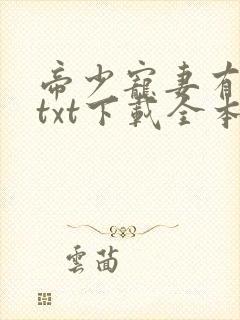 帝少寵妻有
txt下載全本
雲茵